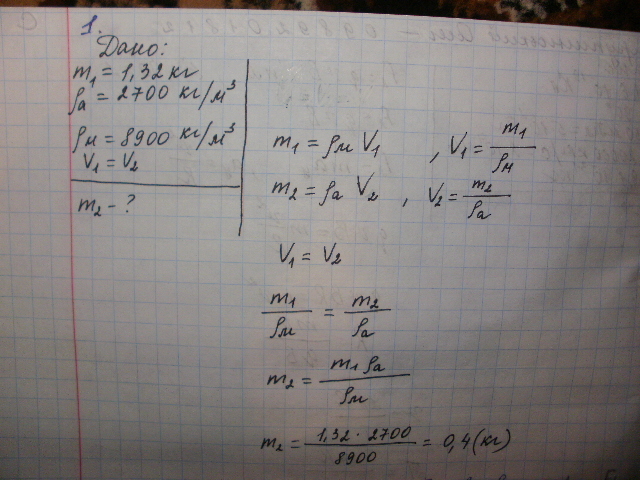 1.
Дано:
m₁ = 1,32 кг
ρа = 2700 кг/м³
ρм = 8900 кг/м³
V₁ = V₂
m₂ - ?
m₁ = ρм V₁ , V₁ = m₁/ρм
m₂ = ρа V₂ , V₂ = m₂/ρа
V₁ = V₂
m₁/ρм = m₂/ρа
m₂ = m₁ ρа/ρм
m₂ = 1,32 · 2700/8900 = 0,4 (кг)